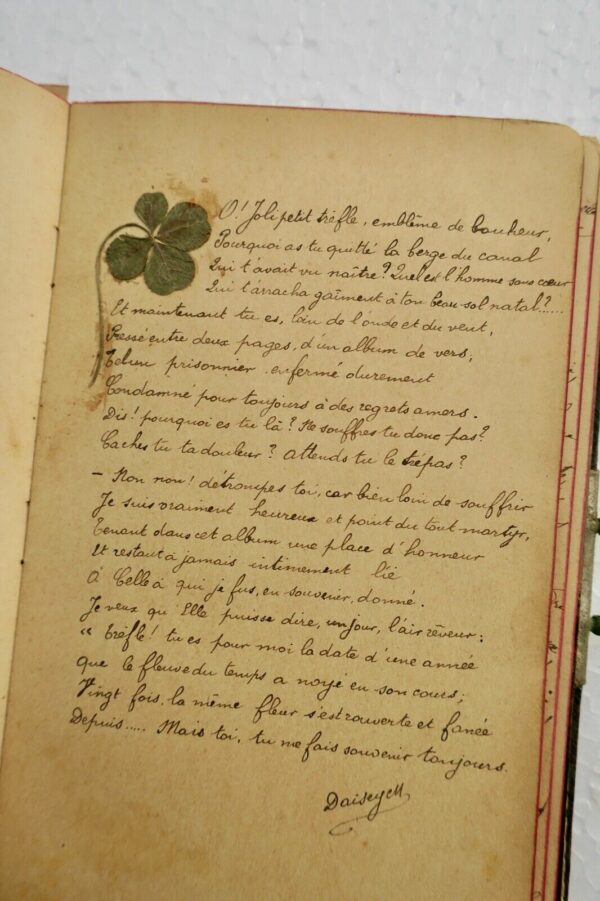 O! Joli petit trèfle, emblème de bonheur,
Pourquoi as tu quitté la berge du canal
Qui t'avait vu naître? Quel est l'homme sans cœur
Qui t'arracha gaîment à ton beau sol natal?....
Et maintenant tu es, loin de l'onde et du vent,
Pressé entre deux pages, d'un album de vers;
Tel un prisonnier enfermé durement
Condamné pour toujours à des regrets amers.
Dis! pourquoi es tu là? Ne souffres tu donc pas?
Caches tu ta douleur? attends tu le trépas?
— Non non! détrompes toi, car bien loin de souffrir
Je suis vraiment heureux et point du tout martyr,
Tenant dans cet album une place d'honneur
Et restant à jamais intimement lié
À Celle à qui je fus, en souvenir, donné.
Je veux qu'Elle puisse dire, un jour, l'air rêveur:
"Trèfle! tu es pour moi la date d'une année
que le fleuve du temps a noyé en son cours;
Vingt fois, la même fleur s'est rouverte et fanée
Depuis..... Mais toi, tu me fais souvenir toujours.
Daisey M